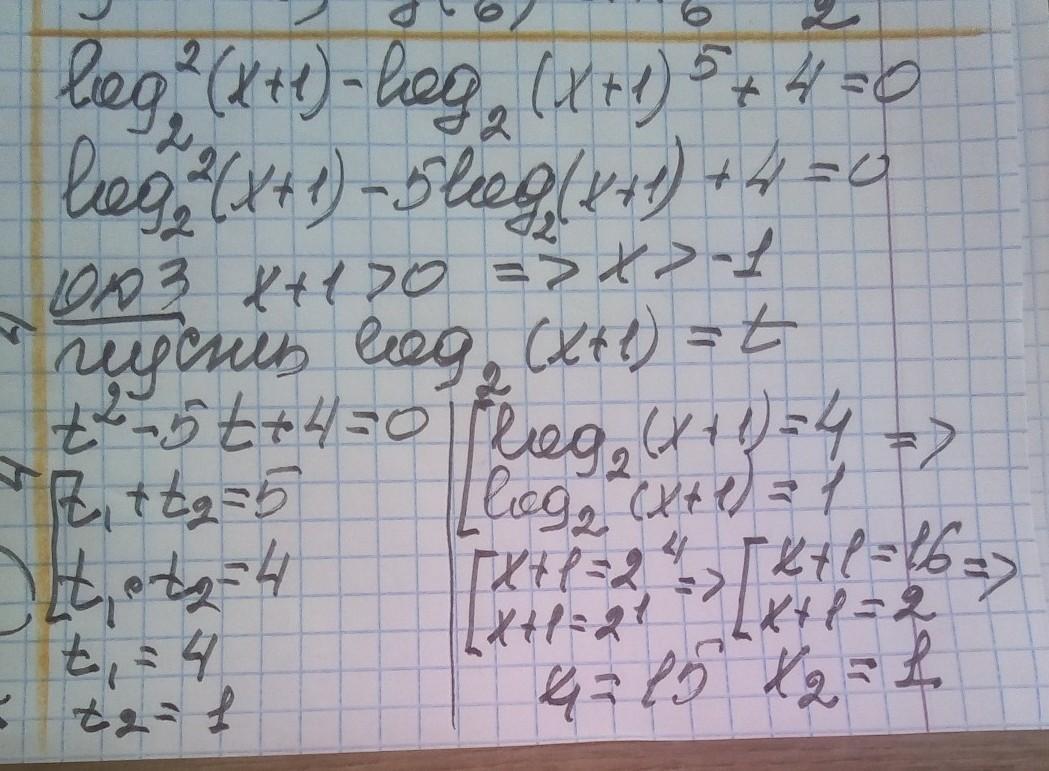 6 2
log₂²(x+1)-log₂(x+1)⁵+4=0
log₂²(x+1)-5log₂(x+1)+4=0
ОЮЗ x+1>0 => x>-1
пусть log₂(x+1)=t
t²-5t+4=0
[t₁+t₂=5
t₁•t₂=4
t₁=4
t₂=1
[log₂(x+1)=4 =>
log₂(x+1)=1
[x+1=2⁴ => [x+1=16 =>
x+1=2¹ x+1=2
x₁=15 x₂=1